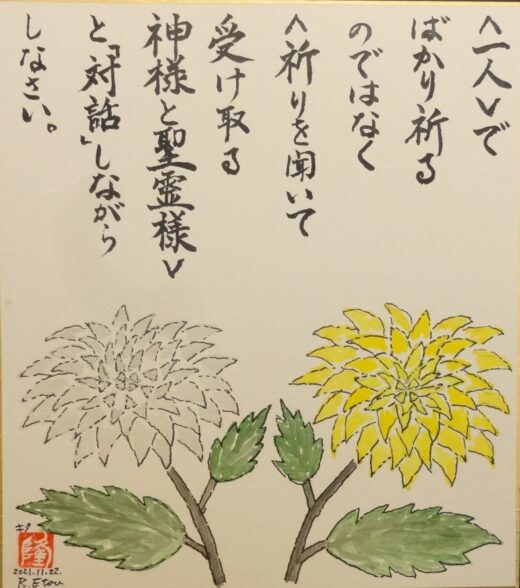 <一人>で
ばかり祈る
のではなく
<祈りを聞いて
受け取る
神様と聖霊様>
と「対話」しながら
しなさい。
キク
隆
2021.11.22.
R.Etou